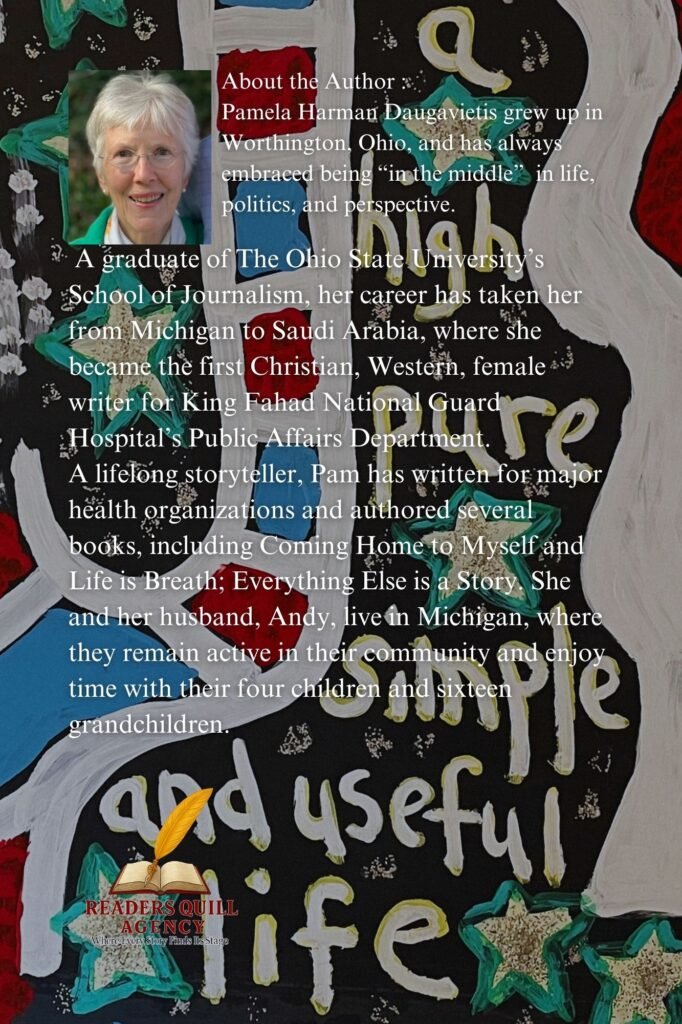 a
About the Author :
Pamela Harman Daugavietis grew up in
Worthington, Ohio, and has always
embraced being “in the middle” in life,
politics, and perspective.
high
A graduate of The Ohio State University’s
School of Journalism, her career has taken her
from Michigan to Saudi Arabia, where she
became the first Christian, Western, female
writer for King Fahad National Guard
Hospital's Public Affairs Department.
pure
A lifelong storyteller, Pam has written for major
health organizations and authored several
books, including Coming Home to Myself and
Life is Breath; Everything Else is a Story. She
and her husband, Andy, live in Michigan, where
they remain active in their community and enjoy
time with their four children and sixteen
grandchildren.
simple
and useful
life
READERS QUILL
AGENCY
Where Every Story Finds Its Stage